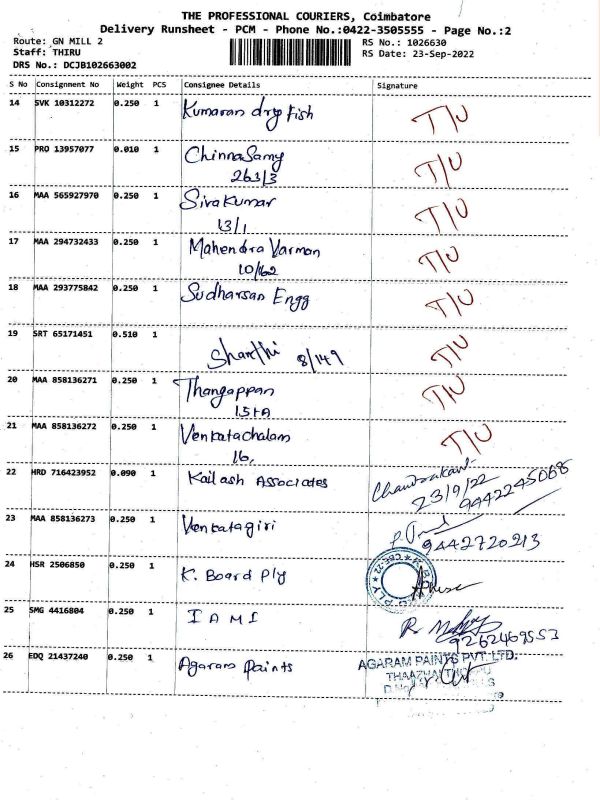 THE PROFESSIONAL COURIERS, Coimbatore
Delivery Runsheet - PCM - Phone No.:0422-3505555 - Page No.:2
Route: GN MILL 2 RS No.: 1026630
Staff: THIRU RS Date: 23-Sep-2022
DRS No.: DCJB102663002
S No Consignment No Weight PCS Consignee Details Signature
14 SVK 10312272 0.250 1 Kumaran dry fish T/U
15 PRO 13957077 0.010 1 ChinnaSamy T/U
263/3
16 MAA 565927970 0.250 1 Sivakumar T/U
13/1
17 MAA 294732433 0.250 1 Mahendra Varman T/U
10/162
18 MAA 293775842 0.250 1 Sudharsan Engg T/U
19 SRT 65171451 0.510 1
8/149 T/U
20 MAA 858136271 0.250 1 Thangappan T/U
21 MAA 858136272 0.250 1 Venkatachalam T/U
16,
22 HRD 716423952 0.090 1 Kailash Associates
23/9/22
9442245068
23 MAA 858136273 0.250 1 Venkatagiri
9442720213
24 HSR 2506850 0.250 1 K. Board Ply
25 SMG 4416804 0.250 1 I A M I
9262469553
26 EDQ 21437240 0.250 1 Agaram Paints AGARAM PAINTS PVT. LTD.